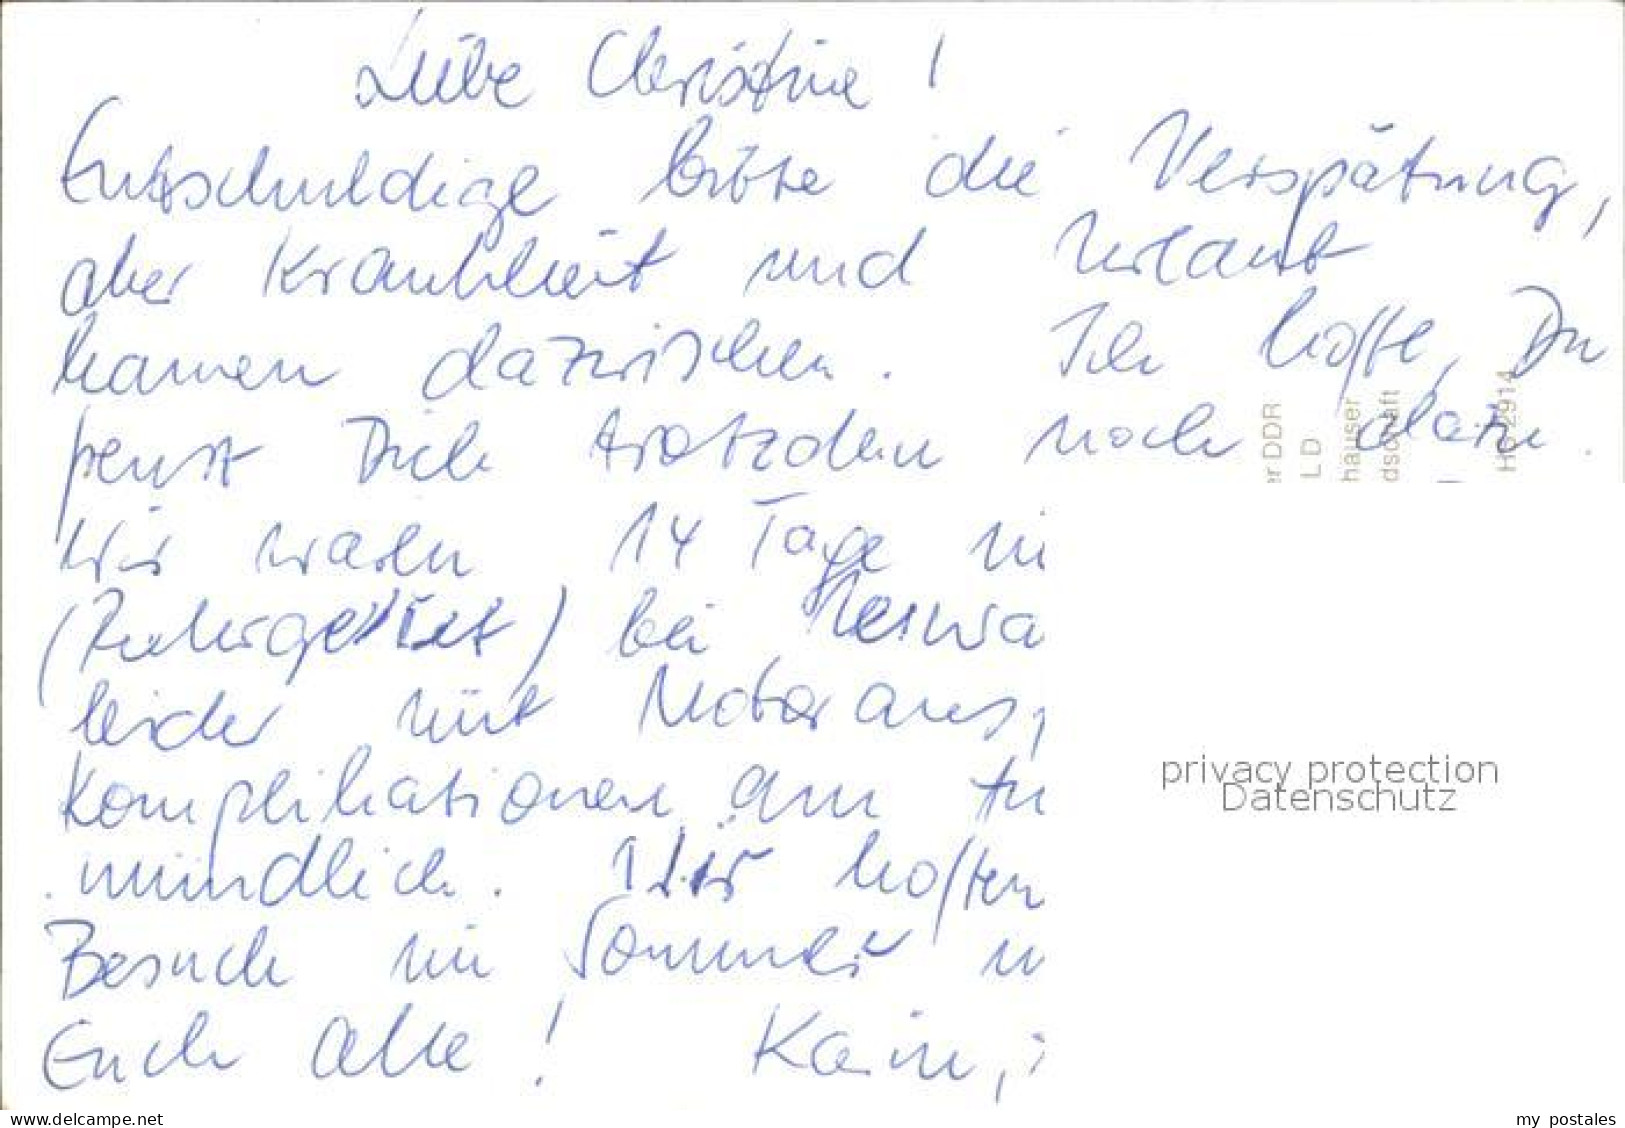 Liebe Christine!
Entschuldige bitte die Verspätung,
aber Krankheit und Urlaub
kamen dazwischen. Ich hoffe, Du
freust Dich trotzdem noch dazu.
Wir waren 14 Tage in
(Ruhrgebiet) bei
leider mit Motoraus
Komplikationen
mündlich. Wir hoffen
Besuch im Sommer
Euch alle!
er DDR
L D
häuser
dschaft
privacy protection
Datenschutz
www.delcampe.net
my_postales